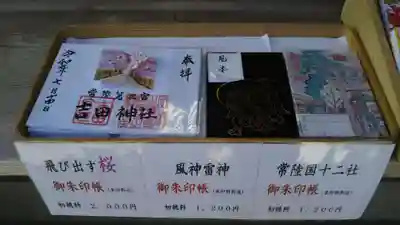 奉拝
常陸第三宮
吉田神社
見本
飛び出す桜
御朱印帳
初穂料 2,000円
風神雷神
御朱印帳
初穂料 1,200円
常陸国十二社
御朱印帳
初穂料 1,200円